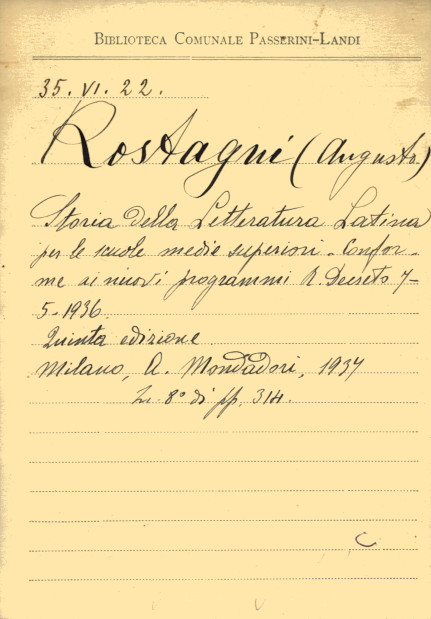 BIBLIOTECA COMUNALE PASSERINI-LANDI
35. VI. 22.
Rostagni (Augusto)
Storia della Letteratura Latina
per le scuole medie superiori - Confor-
me ai nuovi programmi R. Decreto 7-
5-1936.
Quinta edizione.
Milano, A. Mondadori, 1937
In 8° di pp. 314.
C